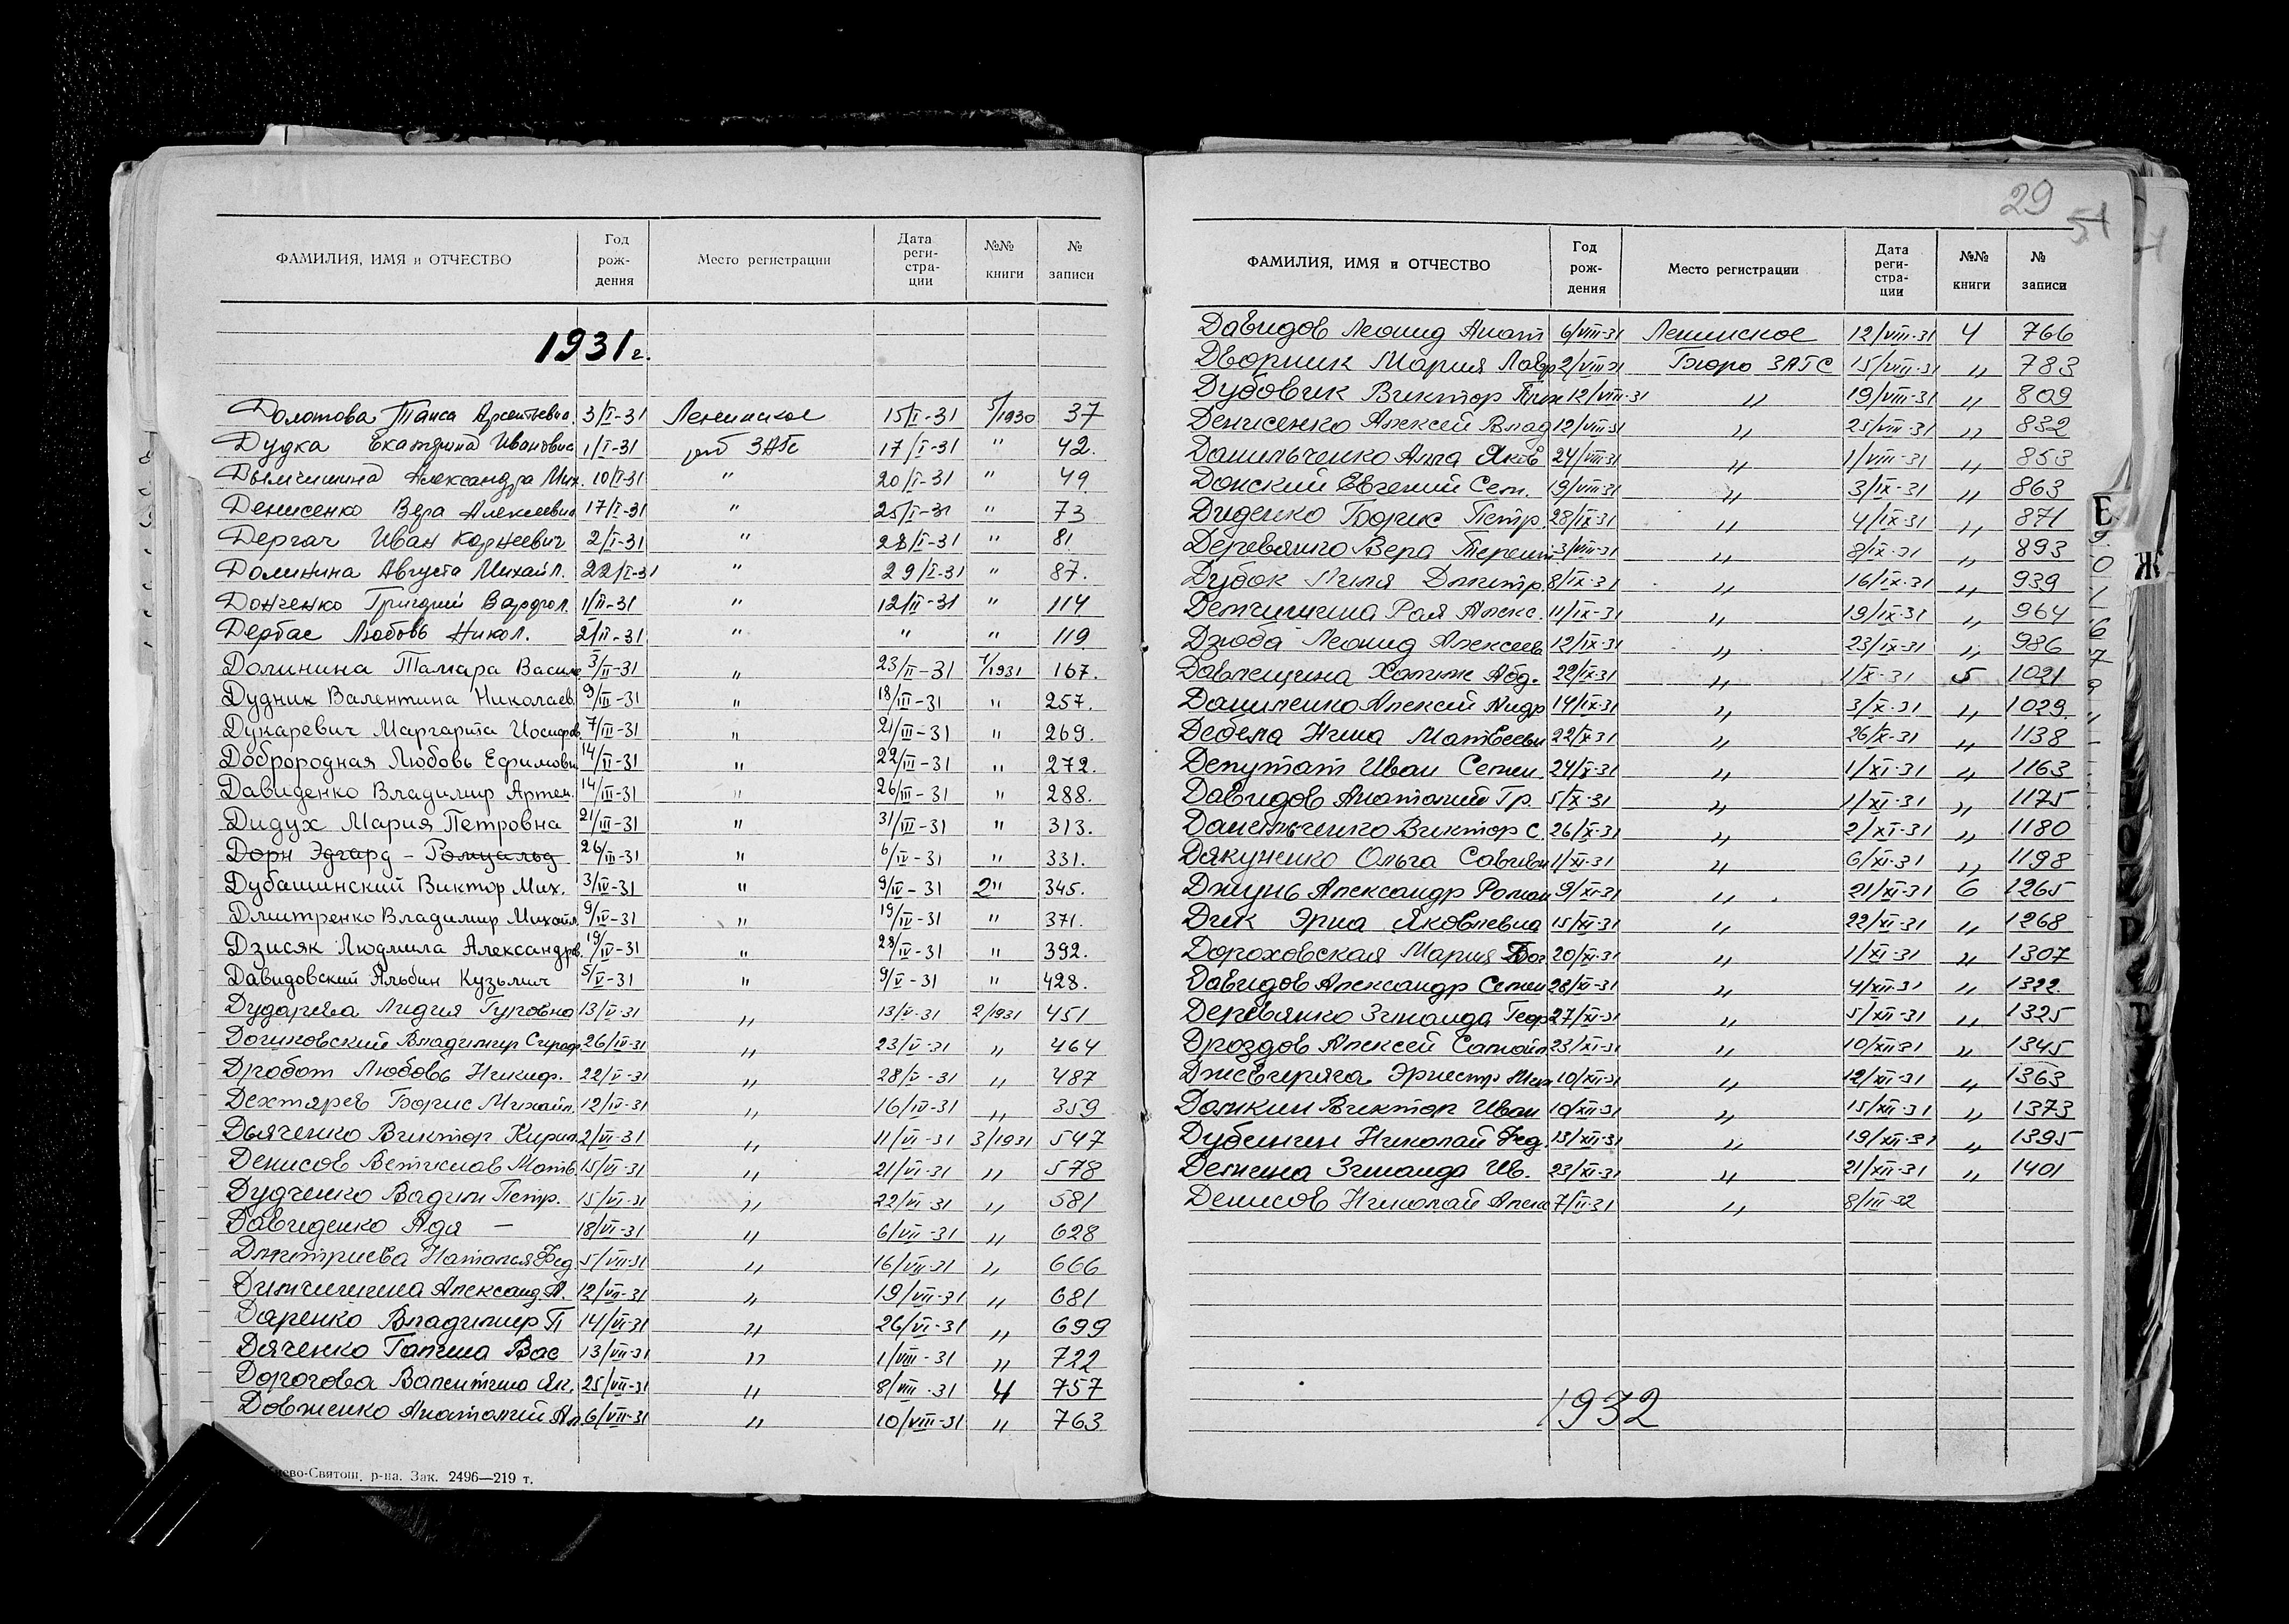 ФАМИЛИЯ, ИМЯ и ОТЧЕСТВО Год рождения Место регистрации Дата регистрации №№ книги № записи
1931 г.
Долотова Таиса Арсентьевна 3/I-31 Ленинское 15/I-31 5/1930 37
Дудка Екатерина Ивановна 1/I-31 ЗАГС 17/I-31 " 42.
Дымчишина Александра Мих. 10/I-31 " 20/I-31 " 49
Денисенко Вера Алексеевна 17/I-31 " 25/I-31 " 73
Дергач Иван Корнеевич 2/I-31 " 28/I-31 " 81
Долинина Августа Михайл. 22/I-31 " 29/I-31 " 87.
Донченко Григорий Варфол. 1/II-31 " 12/II-31 " 114
Дербас Любовь Никол. 2/II-31 " " " 119
Долинина Тамара Васил 3/II-31 " 23/II-31 1/1931 167.
Дудник Валентина Николаев. 9/III-31 " 18/III-31 " 257.
Дукаревич Маргарита Иосифов. 7/III-31 " 21/III-31 " 269.
Доброродная Любовь Ефимовн 14/II-31 " 22/III-31 " 272.
Давиденко Владимир Артем. 14/III-31 " 26/III-31 " 288.
Дидух Мария Петровна 21/III-31 " 31/III-31 " 313.
Дорн Эдгард - Ромуальд 26/III-31 " 6/IV-31 " 331.
Дубашинский Виктор Мих. 3/IV-31 " 9/IV-31 2" 345.
Дмитренко Владимир Михайл. 9/IV-31 " 19/IV-31 " 371.
Дзисяк Людмила Александров. 19/IV-31 " 28/IV-31 " 392.
Давидовский Альбин Кузьмич 5/V-31 " 9/V-31 " 428.
Дударева Лидия Гуровна 13/V-31 " 13/V-31 2/1931 451
Владимир 26/IV-31 " 23/V-31 " 464
Дробот Любовь Никиф. 22/V-31 " 28/V-31 " 487
Дехтярев Борис Михайл. 12/IV-31 " 16/IV-31 " 359
Дьяченко Виктор Кирил. 2/VI-31 " 11/VI-31 3/1931 547
Денисов Матв. 15/VI-31 " 21/VI-31 " 578
Дудченко Вадим Петр. 15/VI-31 " 22/VI-31 " 581
Давиденко Ада — 18/VI-31 " 6/VII-31 " 628
Дмитриева Наталья Фед. 5/VII-31 " 16/VII-31 " 666
Димчишина Александ. А. 12/VII-31 " 19/VII-31 " 681
Даренко Владимир П 14/VI-31 " 26/VI-31 " 699
Дяченко Галина Вас 13/VII-31 " 1/VIII-31 " 722
Дорогова Валентина Як. 25/VII-31 " 8/VIII-31 4 757
Довженко Анатолий Ал 6/VII-31 " 10/VIII-31 " 763
ево-Святош. р-на. Зак. 2496—219 т.
29
51
ФАМИЛИЯ, ИМЯ и ОТЧЕСТВО Год рождения Место регистрации Дата регистрации №№ книги № записи
Давидов Леонид Анат 6/VIII-31 Ленинское 12/VIII-31 4 766
Дворник Мария Лавр 2/VIII-31 Бюро ЗАГС 15/VIII-31 " 783
Дубовик Виктор Тих 12/VIII-31 " 19/VIII-31 " 809
Денисенко Алексей Влад 12/VIII-31 " 25/VIII-31 " 832
Данильченко Алла Яков 24/VIII-31 " 1/VIII-31 " 853
Донский Евгений Сем. 19/VIII-31 " 3/IX-31 " 863
Диденко Борис Петр. 28/IX-31 " 4/IX-31 " 871
Деревянко Вера Терент 3/VIII-31 " 8/IX-31 " 893
Дубок Лиля Дмитр. 8/IX-31 " 16/IX-31 " 939
Демчишина Рая Алекс. 11/IX-31 " 19/IX-31 " 964
Дзюба Леонид Алексеев 12/IX-31 " 23/IX-31 " 986
Давлещина Абд. 22/IX-31 " 1/X-31 5 1021
Даниленко Алексей Андр 14/IX-31 " 3/X-31 " 1029
Дебела Нина Матвеевн 22/X-31 " 26/X-31 " 1138
Депутат Иван Семен. 24/X-31 " 1/XI-31 " 1163
Давидов Анатолий Гр. 5/X-31 " 1/XI-31 " 1175
Данильченко Виктор С. 26/X-31 " 2/XI-31 " 1180
Дякуненко Ольга Савельев 1/XI-31 " 6/XI-31 " 1198
Джунь Александр Роман 9/XI-31 " 21/XI-31 6 1265
Дик Эрна Яковлевна 15/XI-31 " 22/XI-31 " 1268
Дороховская Мария 20/XI-31 " 1/XI-31 " 1307
Давидов Александр Семен 28/XI-31 " 4/XII-31 " 1322
Деревянко Зинаида Геор 27/XI-31 " 5/XII-31 " 1325
Дроздов Алексей Самойл 23/XI-31 " 10/XII-31 " 1345
Дживиряга Эрнест 10/XII-31 " 12/XII-31 " 1363
Домкин Виктор Иван 10/XII-31 " 15/XII-31 " 1373
Дубинин Николай Фед. 13/XII-31 " 19/XII-31 " 1395
Демина Зинаида Ив. 23/XI-31 " 21/XII-31 " 1401
Денисов Николай Алекс 7/II-31 " 8/III-32
1932
Е
Ж